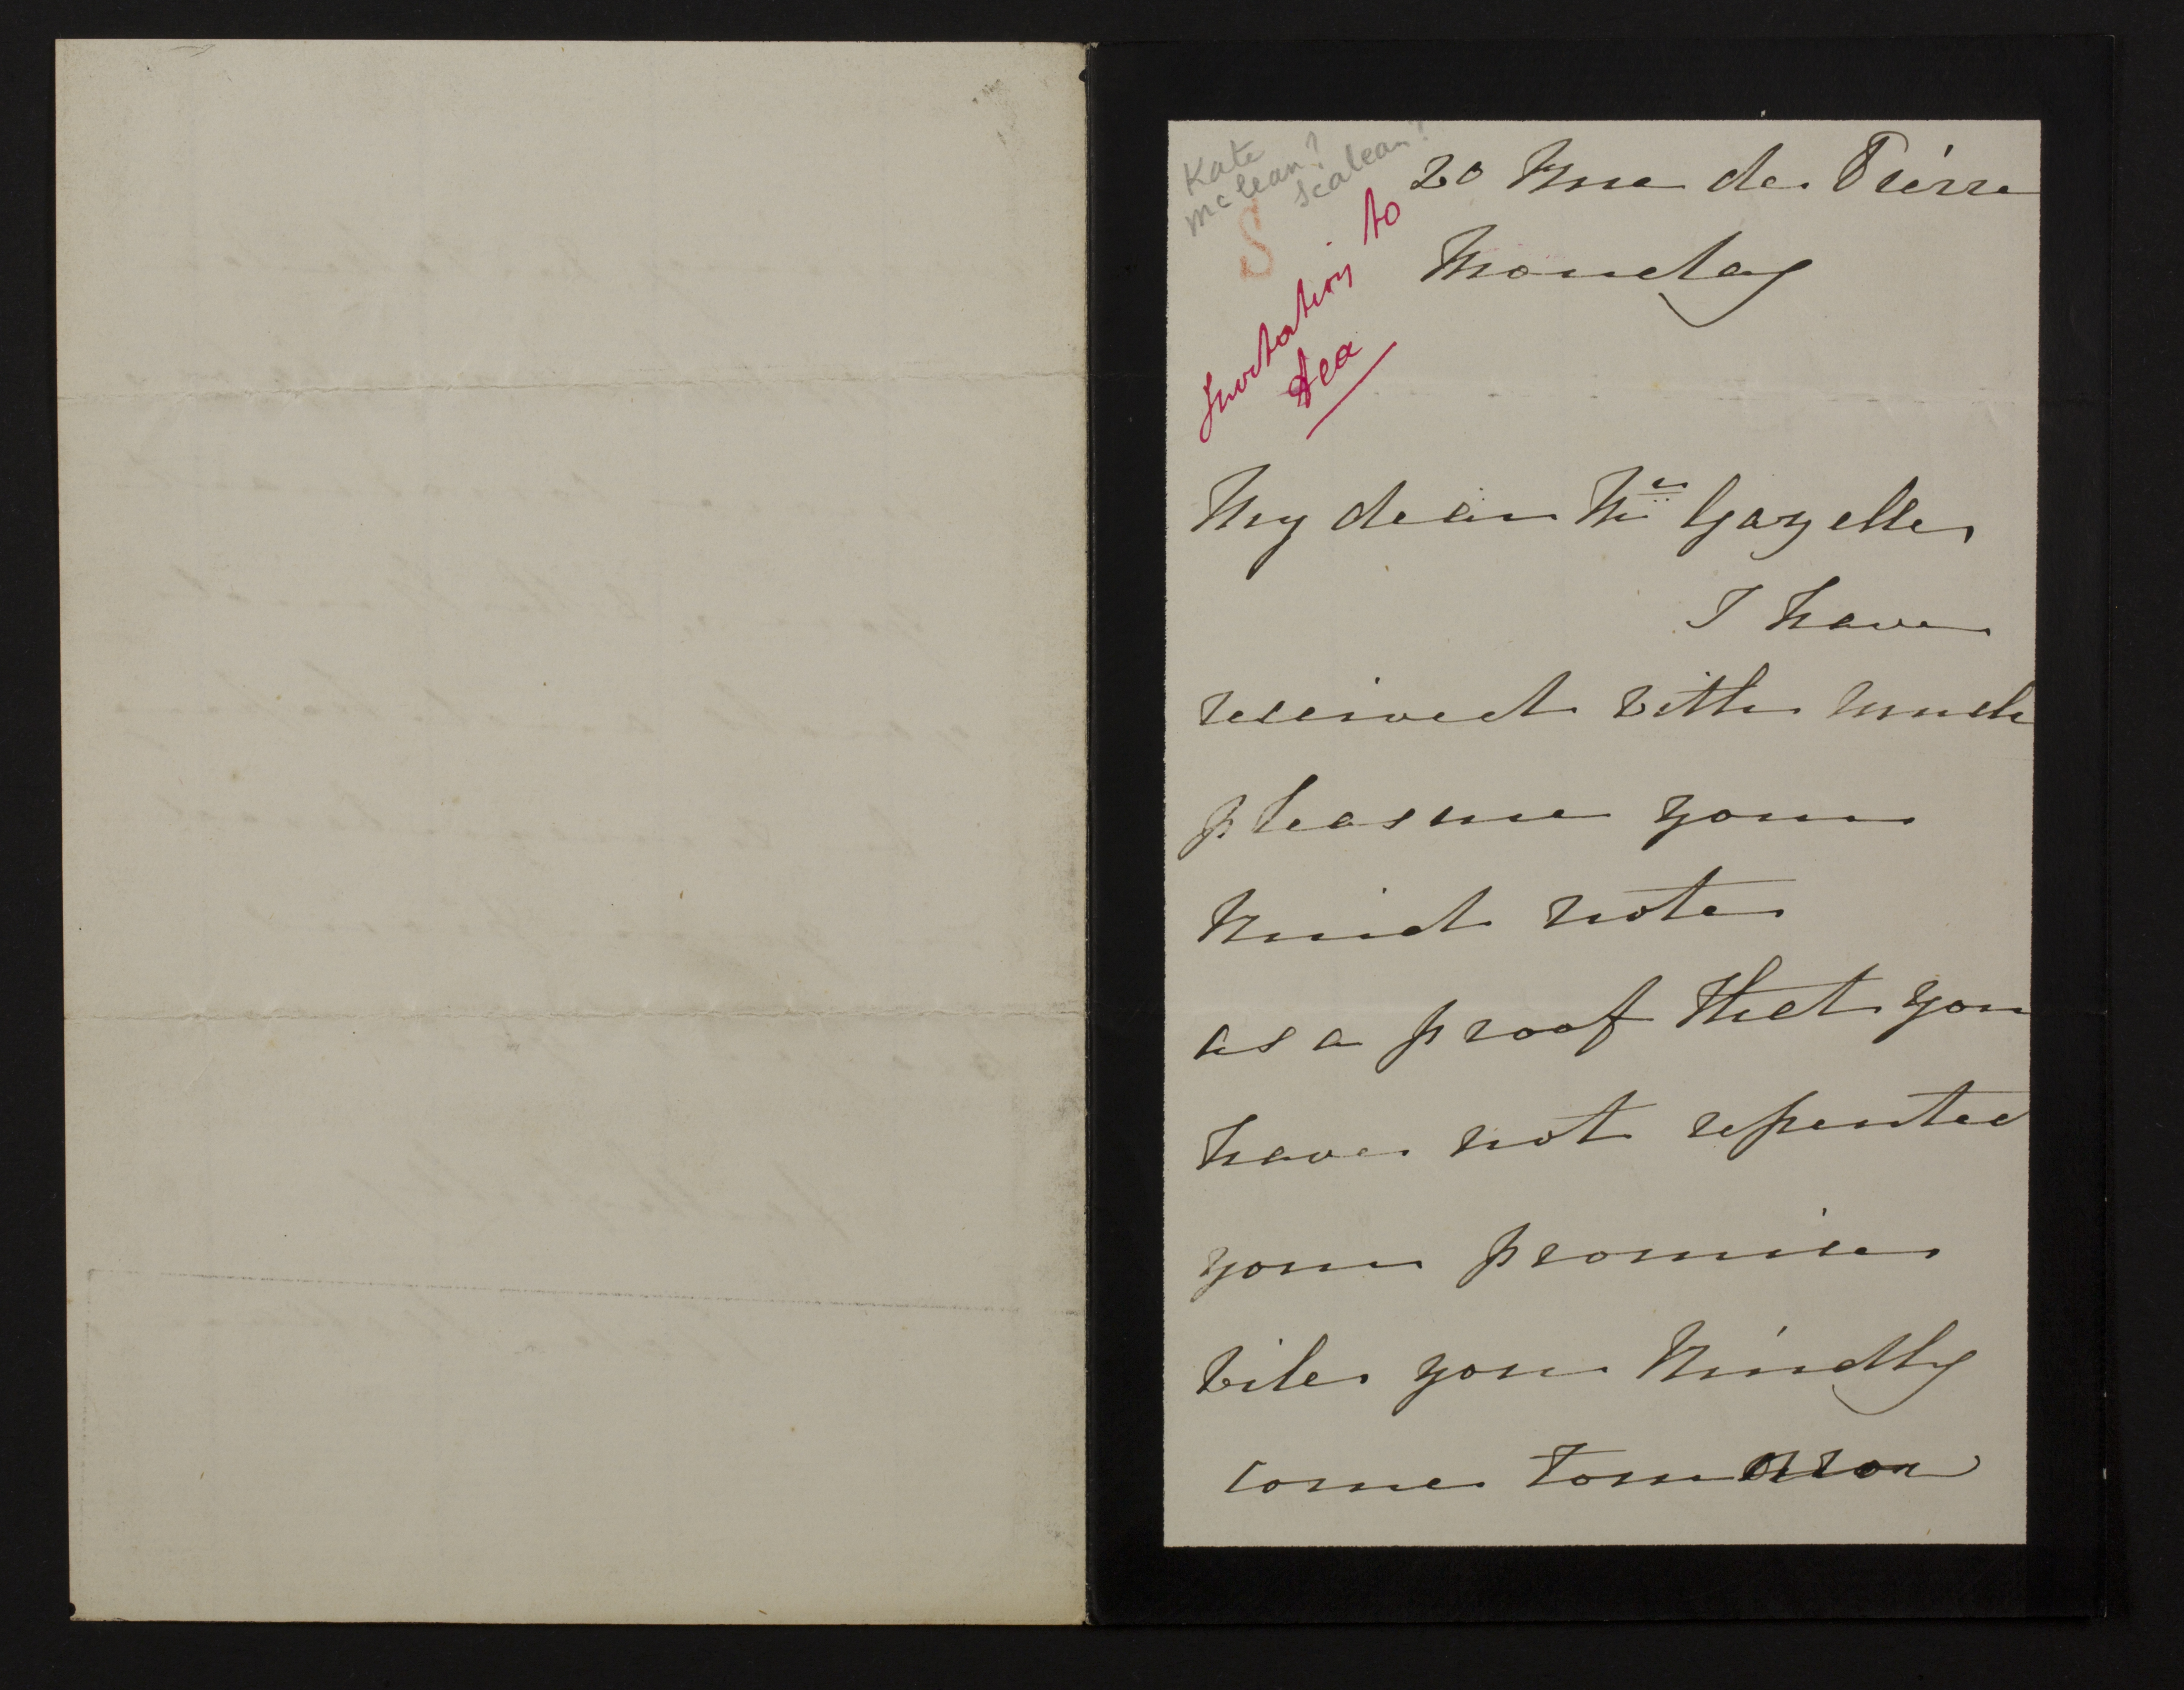 Kate
McClean?
Scalean?
S
Invitation to
tea
20 Rue de Pierre
Monday
My dear Mr Gazelle
I have
received with much
pleasure your
kind note
as a proof that you
have not repented
your promise
Will you kindly
come tomorrow